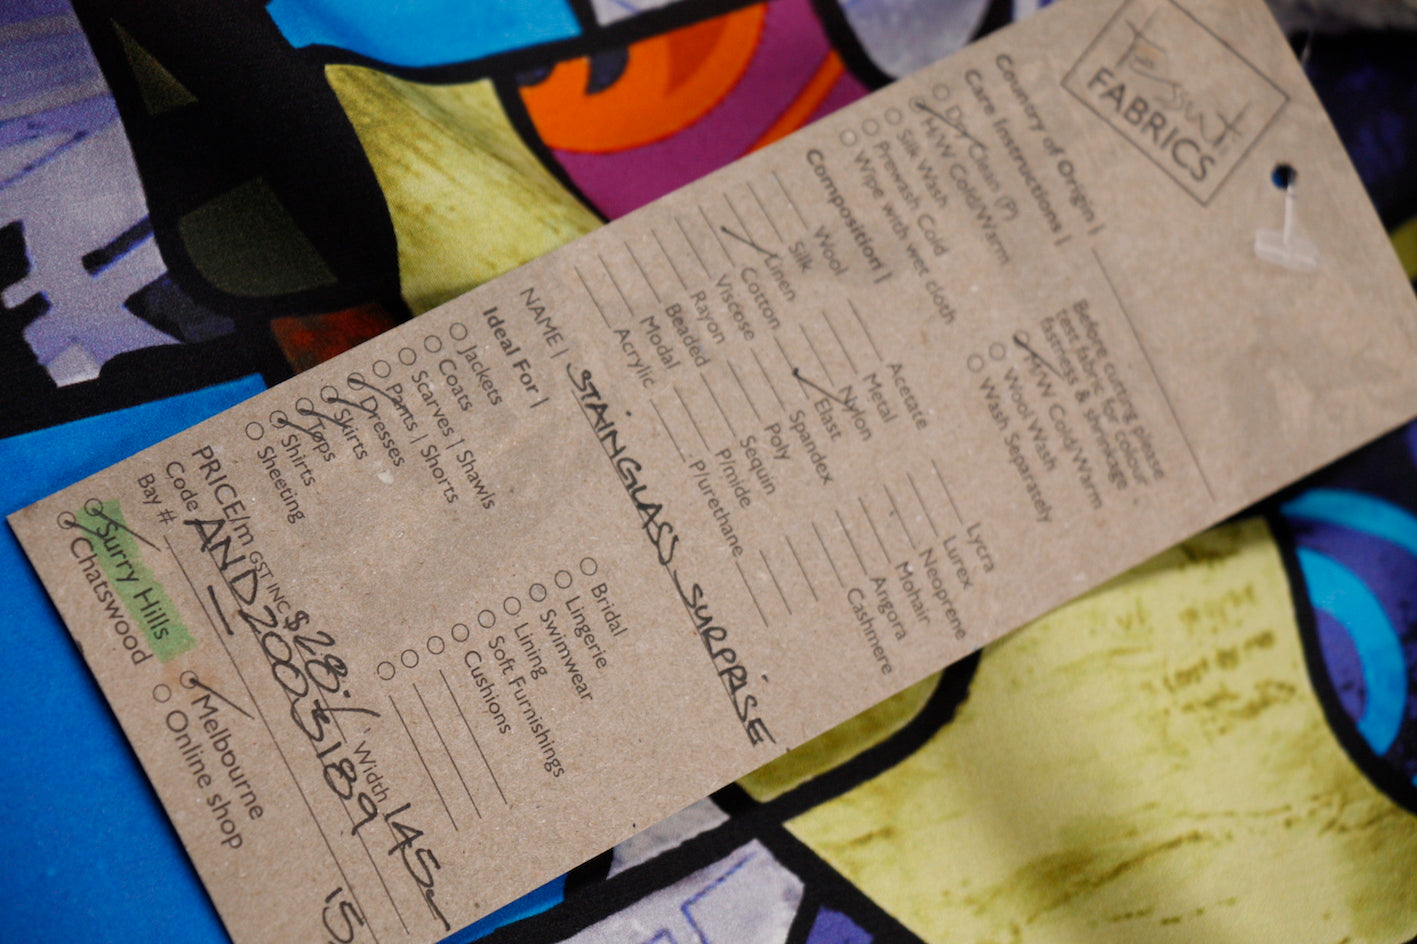 Tessuti
FABRICS
Country of Origin |
Care Instructions |
Dry Clean (P)
H/W Cold/Warm
Silk Wash
Prewash Cold
Wipe with wet cloth
Before cutting please
test fabric for colour
fastness & shrinkage
H/W Cold/Warm
Wool Wash
Wash Separately
Composition |
Wool
Silk
Linen
Cotton
Viscose
Rayon
Beaded
Modal
Acrylic
Acetate
Metal
Nylon
Elast
Spandex
Poly
Sequin
P/mide
P/urethane
Lycra
Lurex
Neoprene
Mohair
Angora
Cashmere
NAME | STAINGLASS SURPRISE
Ideal For |
Jackets
Coats
Scarves | Shawls
Pants | Shorts
Dresses
Skirts
Tops
Shirts
Sheeting
Bridal
Lingerie
Swimwear
Lining
Soft Furnishings
Cushions
PRICE/m GST INC $28./ Width 145
Code AND2003189
Bay # 15
Surry Hills
Chatswood
Melbourne
Online shop